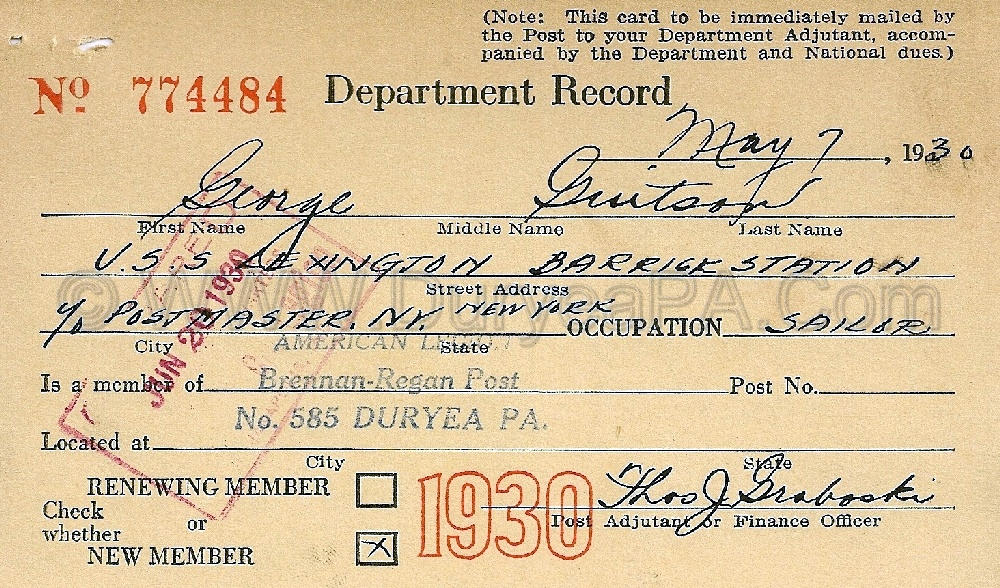 (Note: This card to be immediately mailed by
the Post to your Department Adjutant, accom-
panied by the Department and National dues.)
No 774484 Department Record
May 7, 1930
George Guitson
First Name Middle Name Last Name
U.S.S LEXINGTON BARRICK STATION
Street Address
c/o POSTMASTER. N.Y. NEW YORK OCCUPATION SAILOR
City State
AMERICAN LEGION
Is a member of Brennan-Regan Post Post No.
No. 585 DURYEA PA.
Located at
City State
JUN 20 1930
© WWW.DuryeaPA.Com
RENEWING MEMBER
Check whether or
NEW MEMBER X
1930
Thos J Graboski
Post Adjutant or Finance Officer